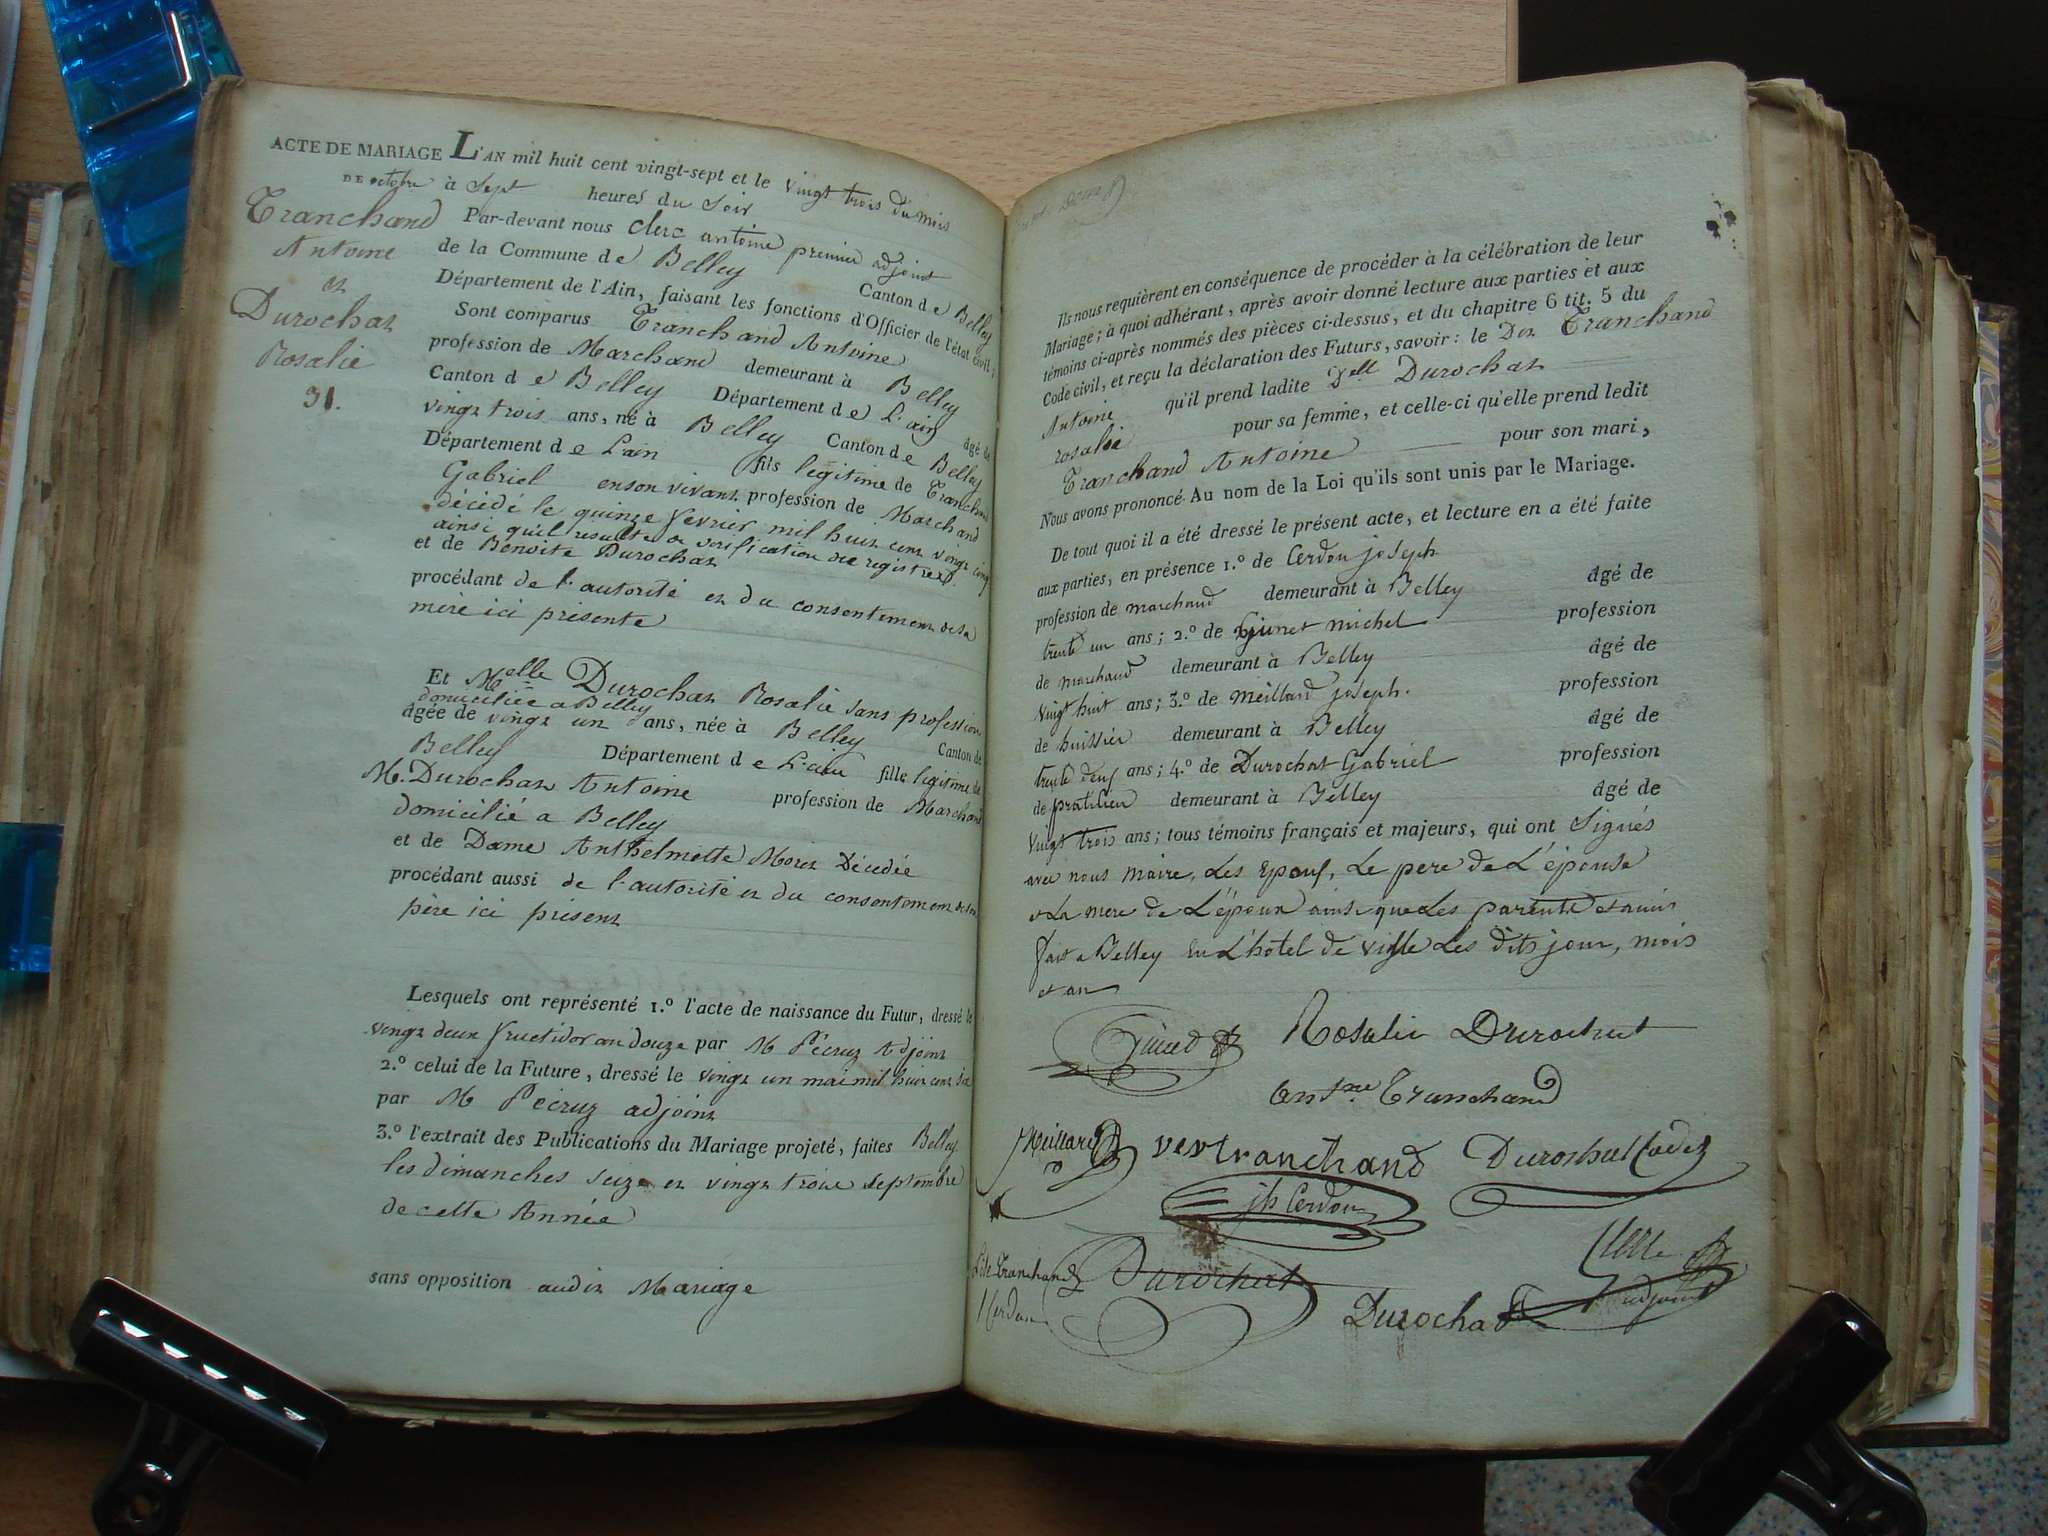 ACTE DE MARIAGE
Tranchand
Antoine
et
Durochat
Rosalie
31.
L'AN mil huit cent vingt-sept et le vingt trois du mois
DE octobre à sept heures du soir
Par-devant nous clerc antoine premier adjoint
de la Commune de Belley Canton de Belley
Département de l'Ain, faisant les fonctions d'Officier de l'état civil,
Sont comparus Tranchand Antoine
profession de Marchand demeurant à Belley
Canton de Belley Département de L'ain âgé de
vingt trois ans, né à Belley Canton de Belley
Département de L'ain fils legitime de Tranchand
Gabriel en son vivant profession de Marchand
décédé le quinze fevrier mil huit cent vingt cinq
ainsi qu'il resulte de verification des registres
et de Benoite Durochat
procédant de l'autorité et du consentement de sa
mère ici présente
Et Melle Durochat Rosalie sans profession
domiciliée a Belley
âgée de vingt un ans, née à Belley Canton de
Belley Département de L'ain fille legitime de
M. Durochat Antoine profession de Marchand
domicilié a Belley
et de Dame Anthelmette Moret Décédée
procédant aussi de l'autorité et du consentement de son
père ici présent
Lesquels ont représenté 1.º l'acte de naissance du Futur, dressé le
vingt deux fructidor an douze par M Pécruz Adjoint
2.º celui de la Future, dressé le vingt un mai mil huit cent six
par M Pécruz adjoint
3.º l'extrait des Publications du Mariage projeté, faites Belley
les dimanches seize et vingt trois septembre
de cette Année
sans opposition audit Mariage
Ils nous requièrent en conséquence de procéder à la célébration de leur
Mariage; à quoi adhérant, après avoir donné lecture aux parties et aux
témoins ci-après nommés des pièces ci-dessus, et du chapitre 6 tit. 5 du
Code civil, et reçu la déclaration des Futurs, savoir: le Dit Tranchand
Antoine qu'il prend ladite Delle Durochat
rosalie pour sa femme, et celle-ci qu'elle prend ledit
Tranchand Antoine pour son mari,
Nous avons prononcé Au nom de la Loi qu'ils sont unis par le Mariage.
De tout quoi il a été dressé le présent acte, et lecture en a été faite
aux parties, en présence 1.º de Cerdon joseph
profession de marchand demeurant à Belley âgé de
trente un ans; 2.º de Ginet michel profession
de marchand demeurant à Belley âgé de
vingt huit ans; 3.º de Meillard joseph. profession
de huissier demeurant à Belley âgé de
trente deux ans; 4.º de Durochat Gabriel profession
de praticien demeurant à Belley âgé de
vingt trois ans; tous témoins français et majeurs, qui ont signés
avec nous maire, Les Epoux, Le pere de L'épouse
et La mere de L'époux ainsi que Les parents et amis
fait a Belley en L'hotel de ville Les dits jour, mois
et an
Ginet Rosalie Durochat
Antne Tranchand
Meillard vev tranchand Durochat Cadet
jh Cerdon
Tranchand Durochat
Cerdon Durochat adjoint